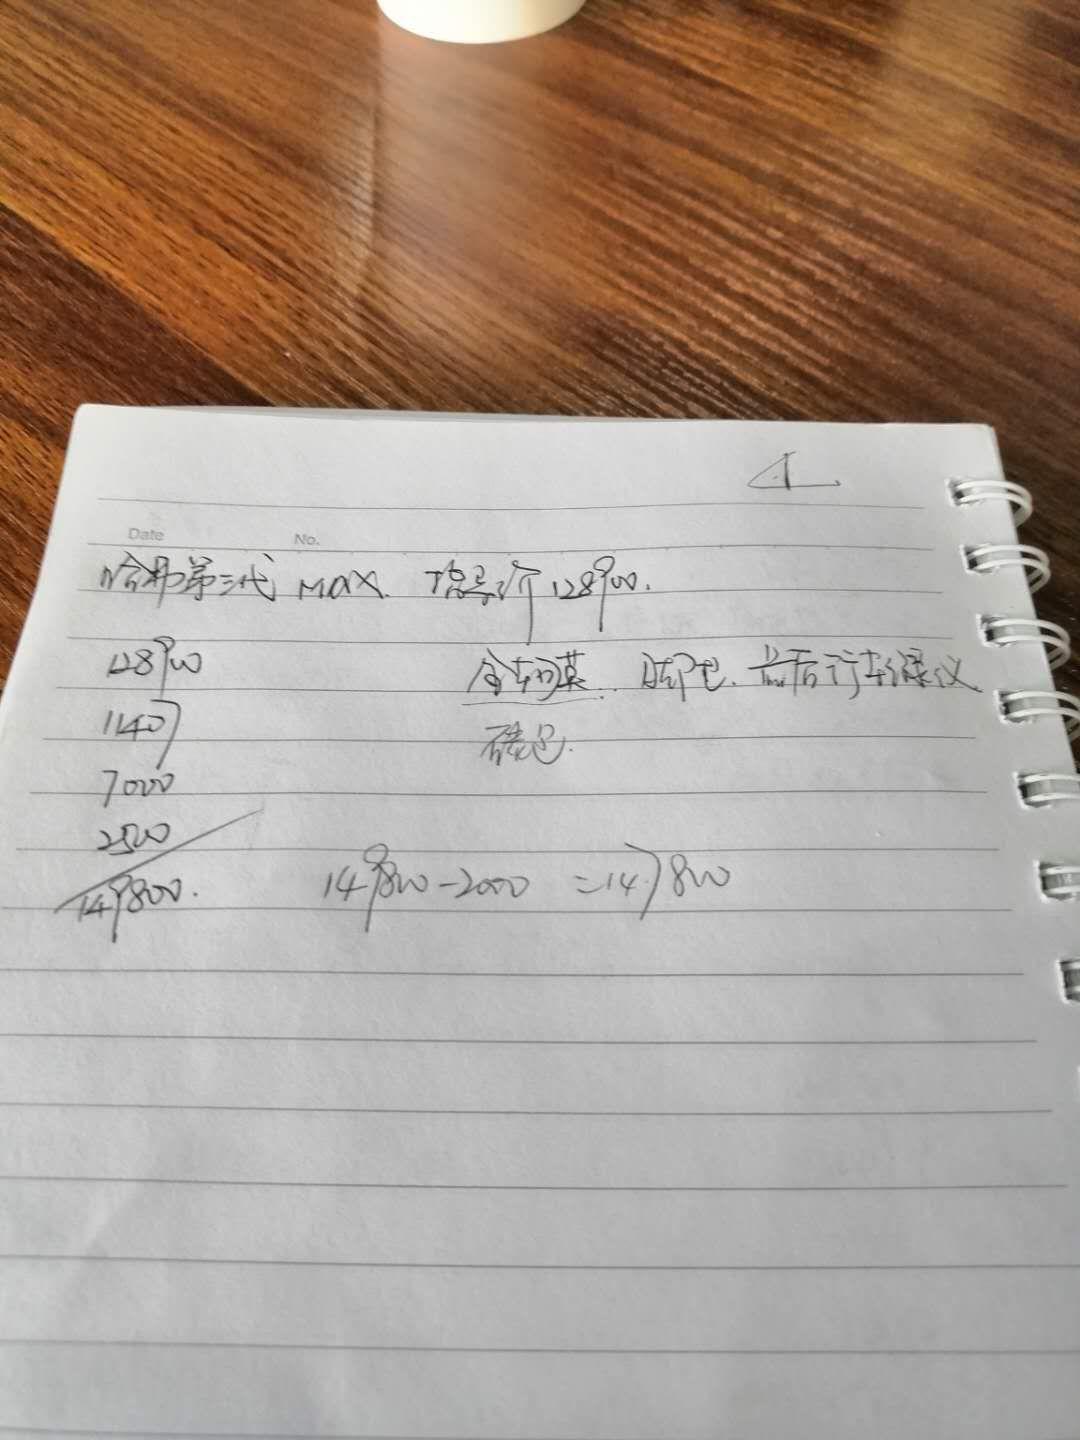 Date No.
哈弗第三代 MAX 指导价 128900.
128900 全车膜. 脚垫. 前后行车记录仪
11407 礼包.
7000
2500
149800. 149800-2000 =147800